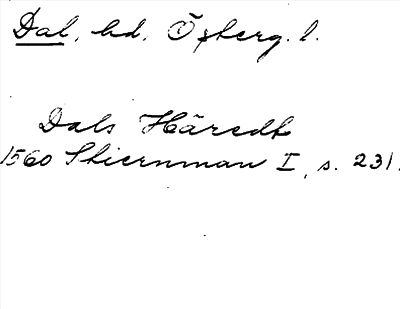 Dal, hd, Österg. l.
Dals Häredt
1560 Stiernman I, s. 231.